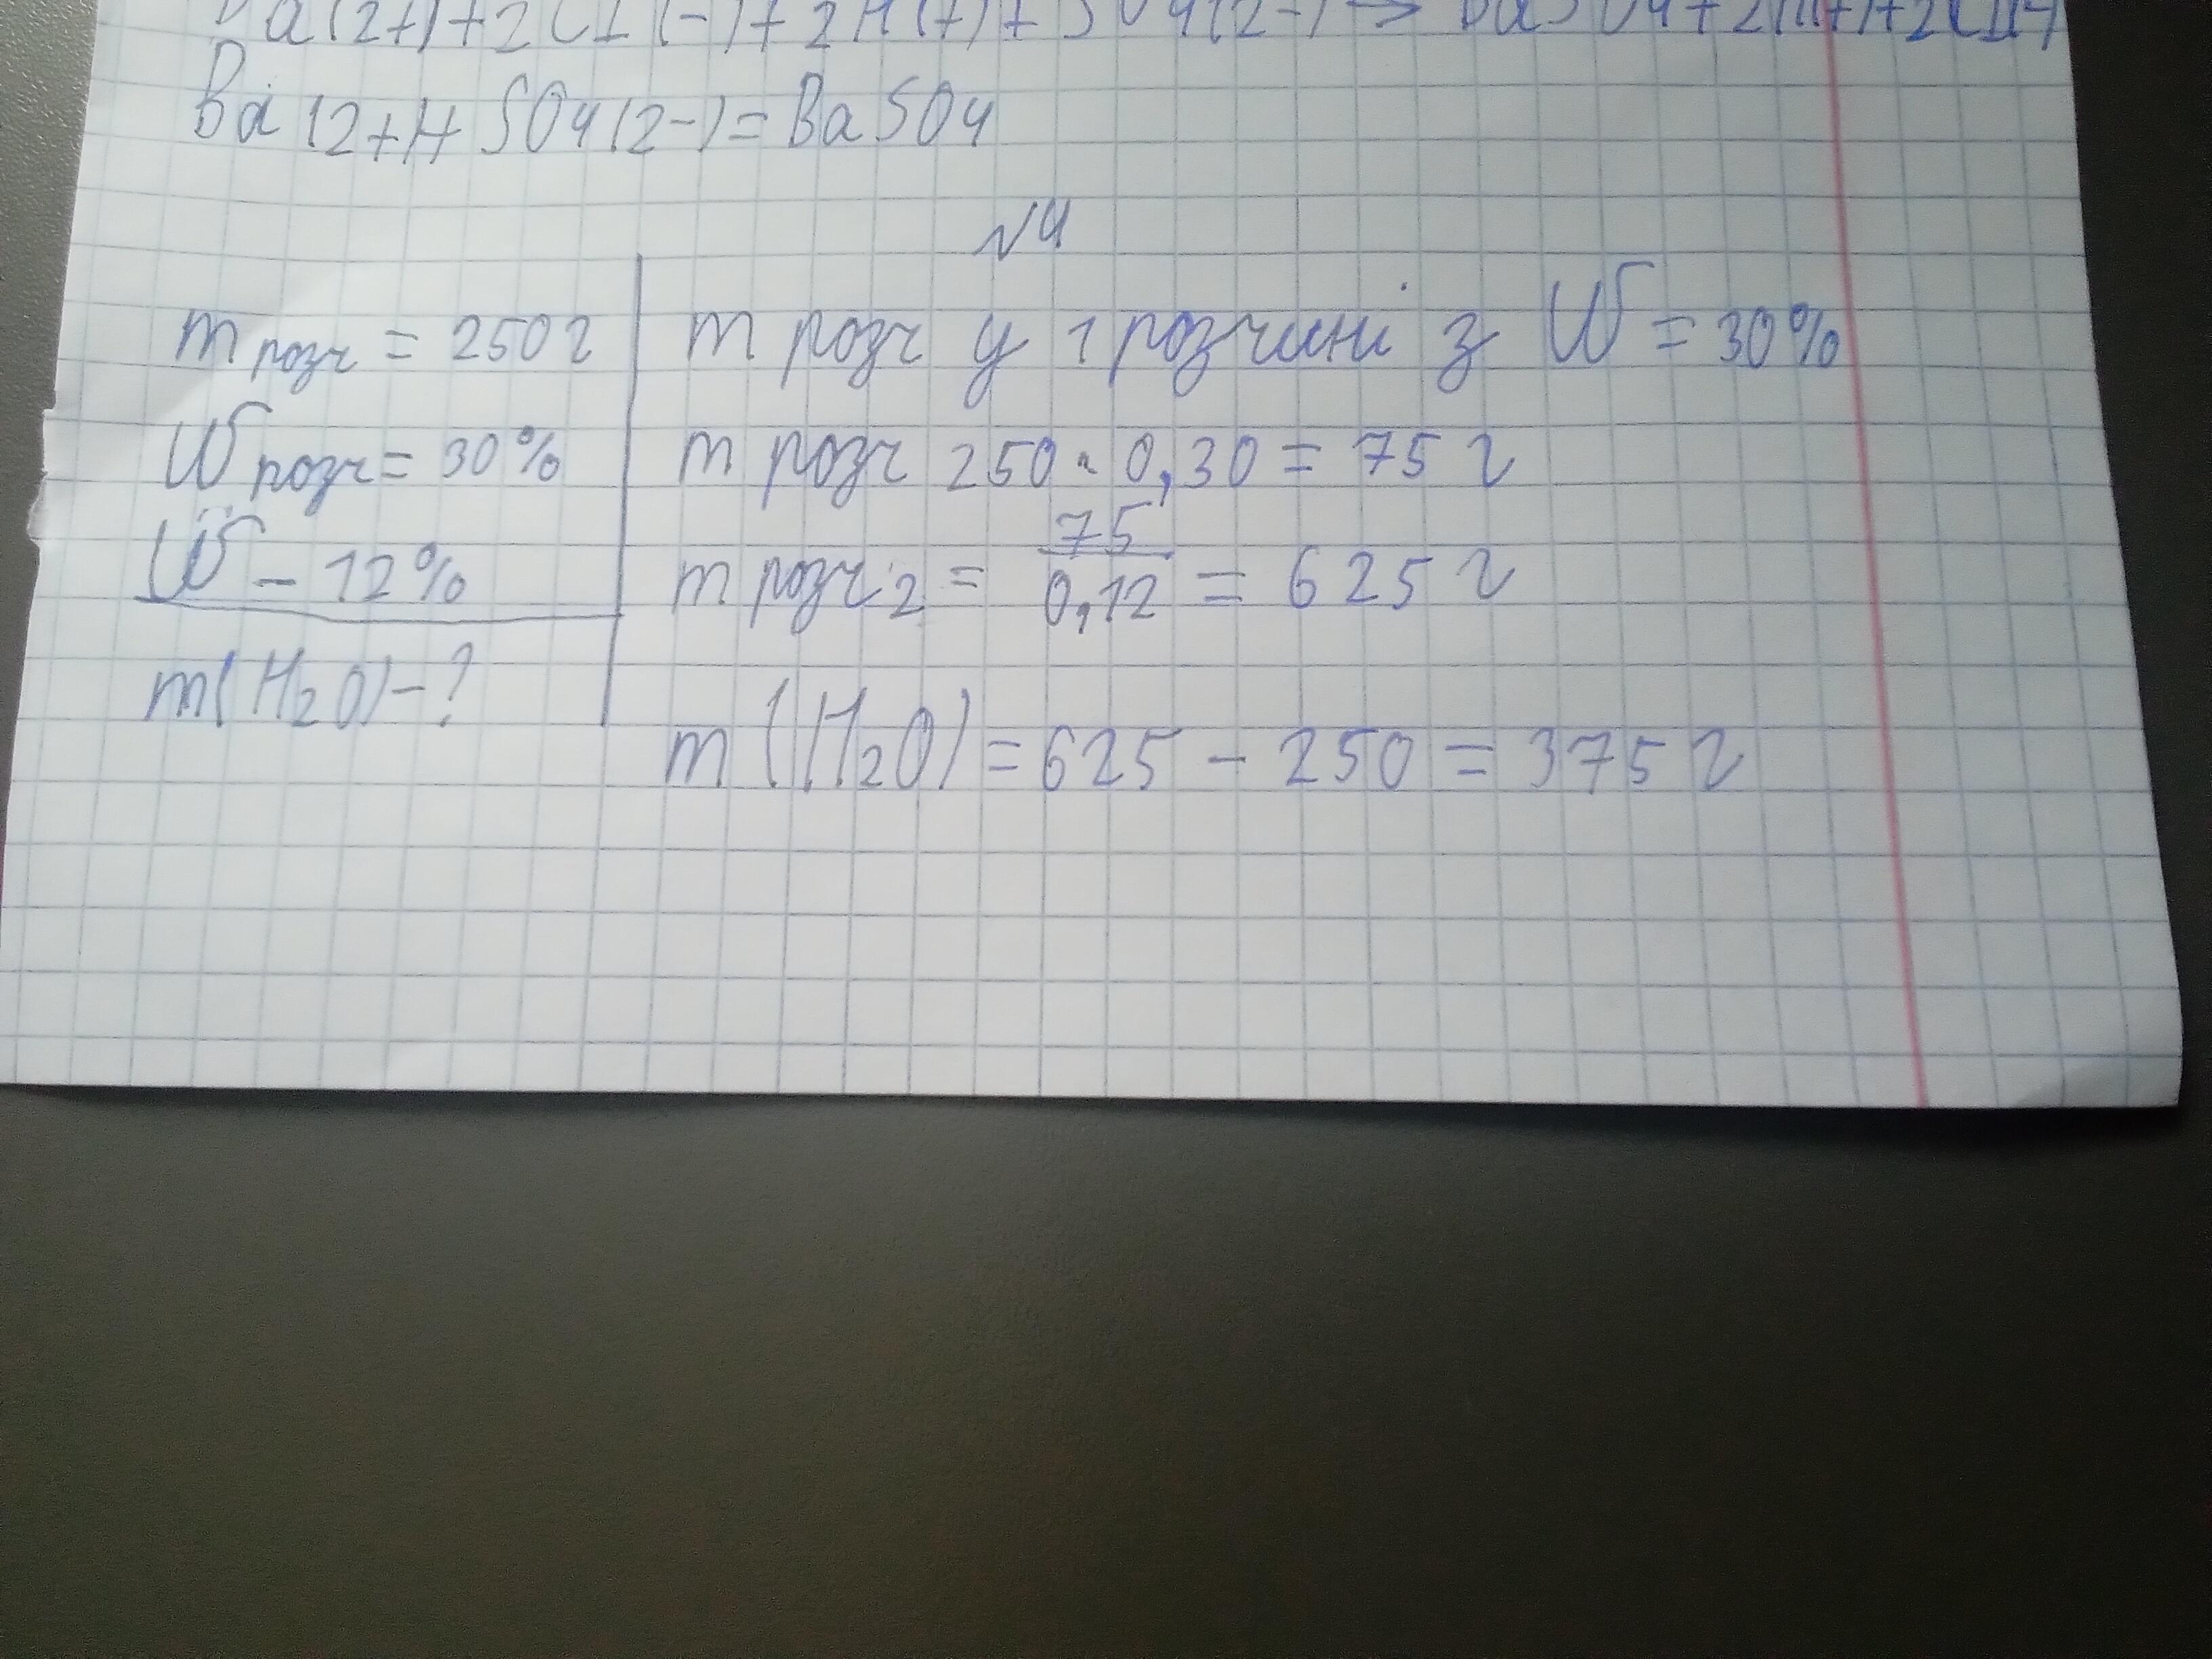 Ba(2+)+2Cl(-)+2H(+)+SO4(2-)→BaSO4+2H(+)+2Cl(-)
Ba(2+)+SO4(2-)=BaSO4
№4
m розч = 250 г
W розч = 30%
W - 12%
m(H2O)-?
m розч у 1 розчині з W = 30%
m розч 250 · 0,30 = 75 г
m розч 2 = 75/0,12 = 625 г
m(H2O) = 625 - 250 = 375 г